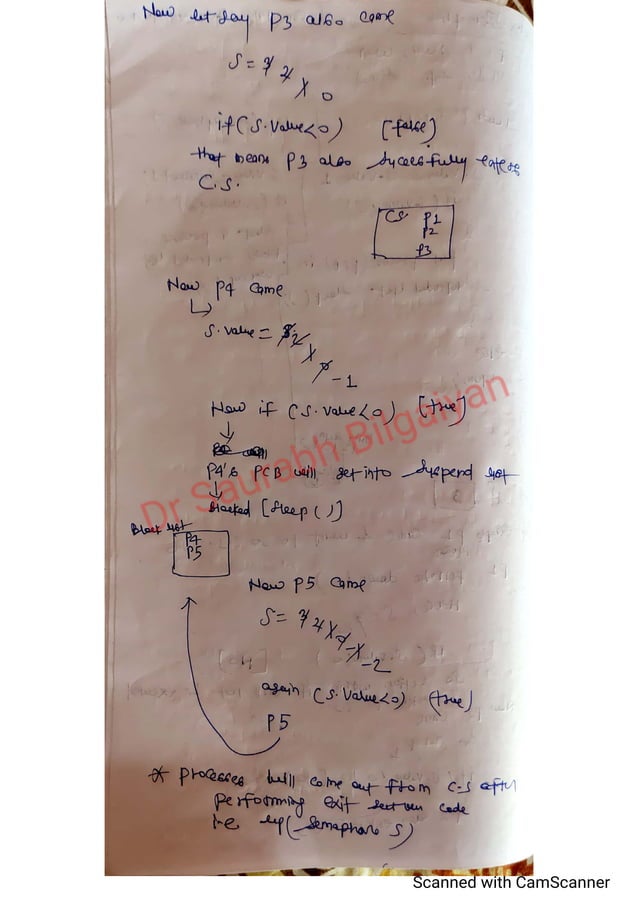 Now let say P3 also came
S = 3 2 1 0
if (S.value<0) [false]
that means P3 also successfully enters
C.S.
CS P1
P2
P3
Now P4 came
S.value = 3 2 1 0 -1
Now if (S.value<0) [true]
P4's PCB will get into suspend list
blocked [sleep()]
Block list
P4
P5
Now P5 came
S = 3 2 1 0 -1 -2
again (S.value<0) (true)
P5
* Processes will come out from C.S after
performing exit section code
i.e up(Semaphore S)
Dr Saurabh Bilgaiyan
Scanned with CamScanner